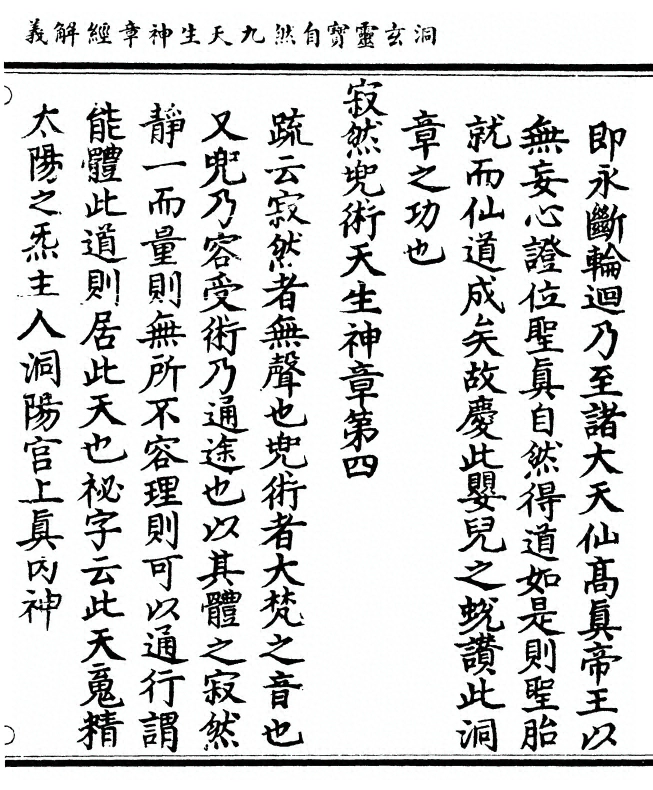 洞玄靈寶自然九天生神章經解義
即永斷輪迴乃至諸大天仙髙眞帝王以
無妄心證位聖眞自然得道如是則聖胎
就而仙道成矣故慶此嬰兒之蛻讚此洞
章之功也
寂然兜術天生神章第四
疏云寂然者無聲也兜術者大梵之音也
又兜乃容受術乃通途也以其體之寂然
靜一而量則無所不容理則可以通行謂
能體此道則居此天也祕字云此天䰟精
太陽之炁主人洞陽宫上眞内神